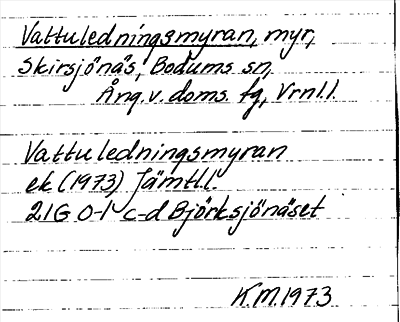 Vattuledningsmyran, myr,
Skirsjönäs, Bodums sn,
Ång.v.doms. fg, Vrnl.l.
Vattuledningsmyran
ek (1973) Jämtl.l.
21G 0-1 c-d Björksjönäset
K.M.1973